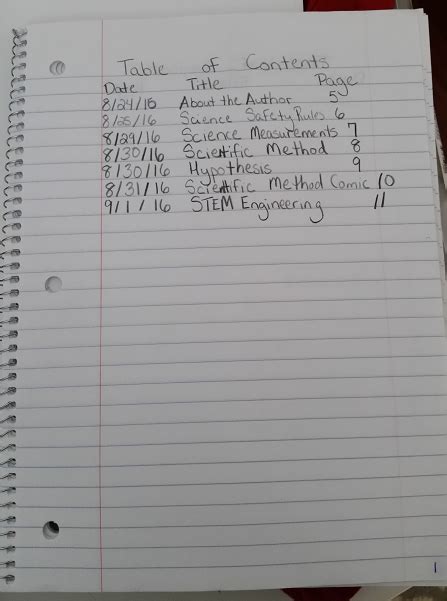 Table of Contents
Date Title Page
8/24/16 About the Author 5
8/25/16 Science Safety Rules 6
8/29/16 Science Measurements 7
8/30/16 Scientific Method 8
8/30/16 Hypothesis 9
8/31/16 Scientific Method Comic 10
9/1/16 STEM Engineering 11
1